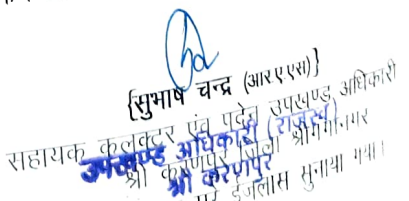 {सुभाष चन्द्र (आरएएस)}
सहायक कलक्टर एंव पदेन उपखण्ड अधिकारी
उपखण्ड अधिकारी (राजस्व)
श्री करणपुर जिला श्रीगंगानगर
श्री करणपुर
इजलास सुनाया गया।